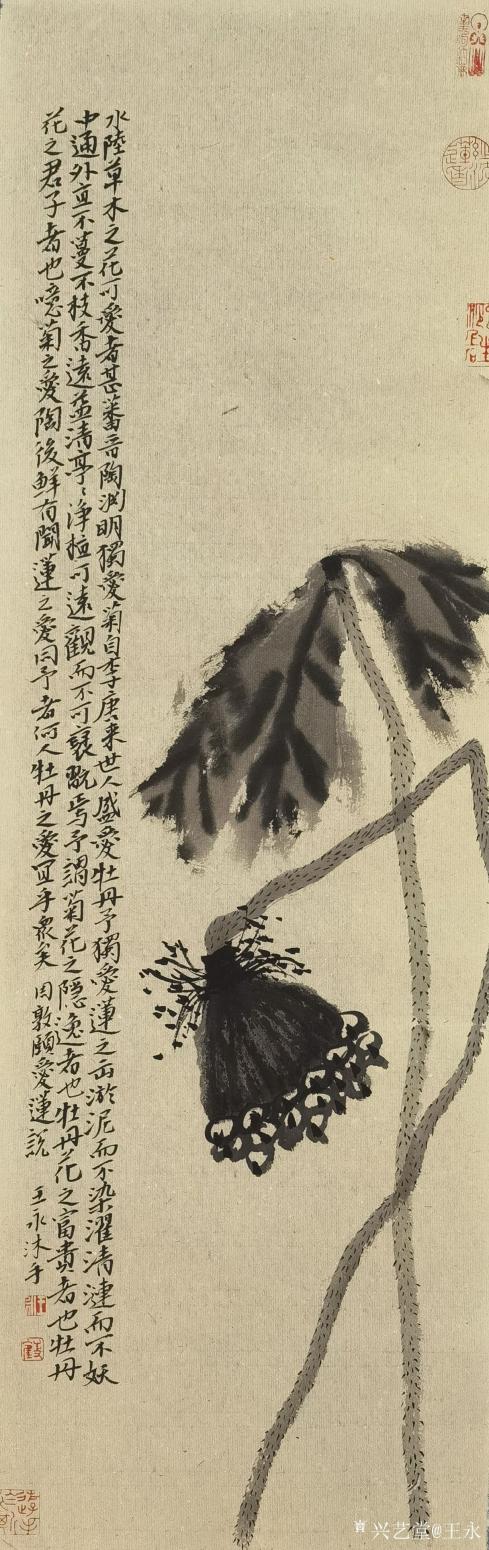 水陸草木之花可愛者甚蕃晉陶渊明獨愛菊自李唐来世人盛愛牡丹予獨愛蓮之出淤泥而不染濯清漣而不妖
中通外直不蔓不枝香遠益清亭〻淨植可遠觀而不可褻翫焉予謂菊花之隱逸者也牡丹花之富貴者也牡丹
花之君子者也噫菊之愛陶後鮮有聞蓮之愛同予者何人牡丹之愛宜乎衆矣 周敦頤愛蓮説 王永沐手
兴艺堂@王永